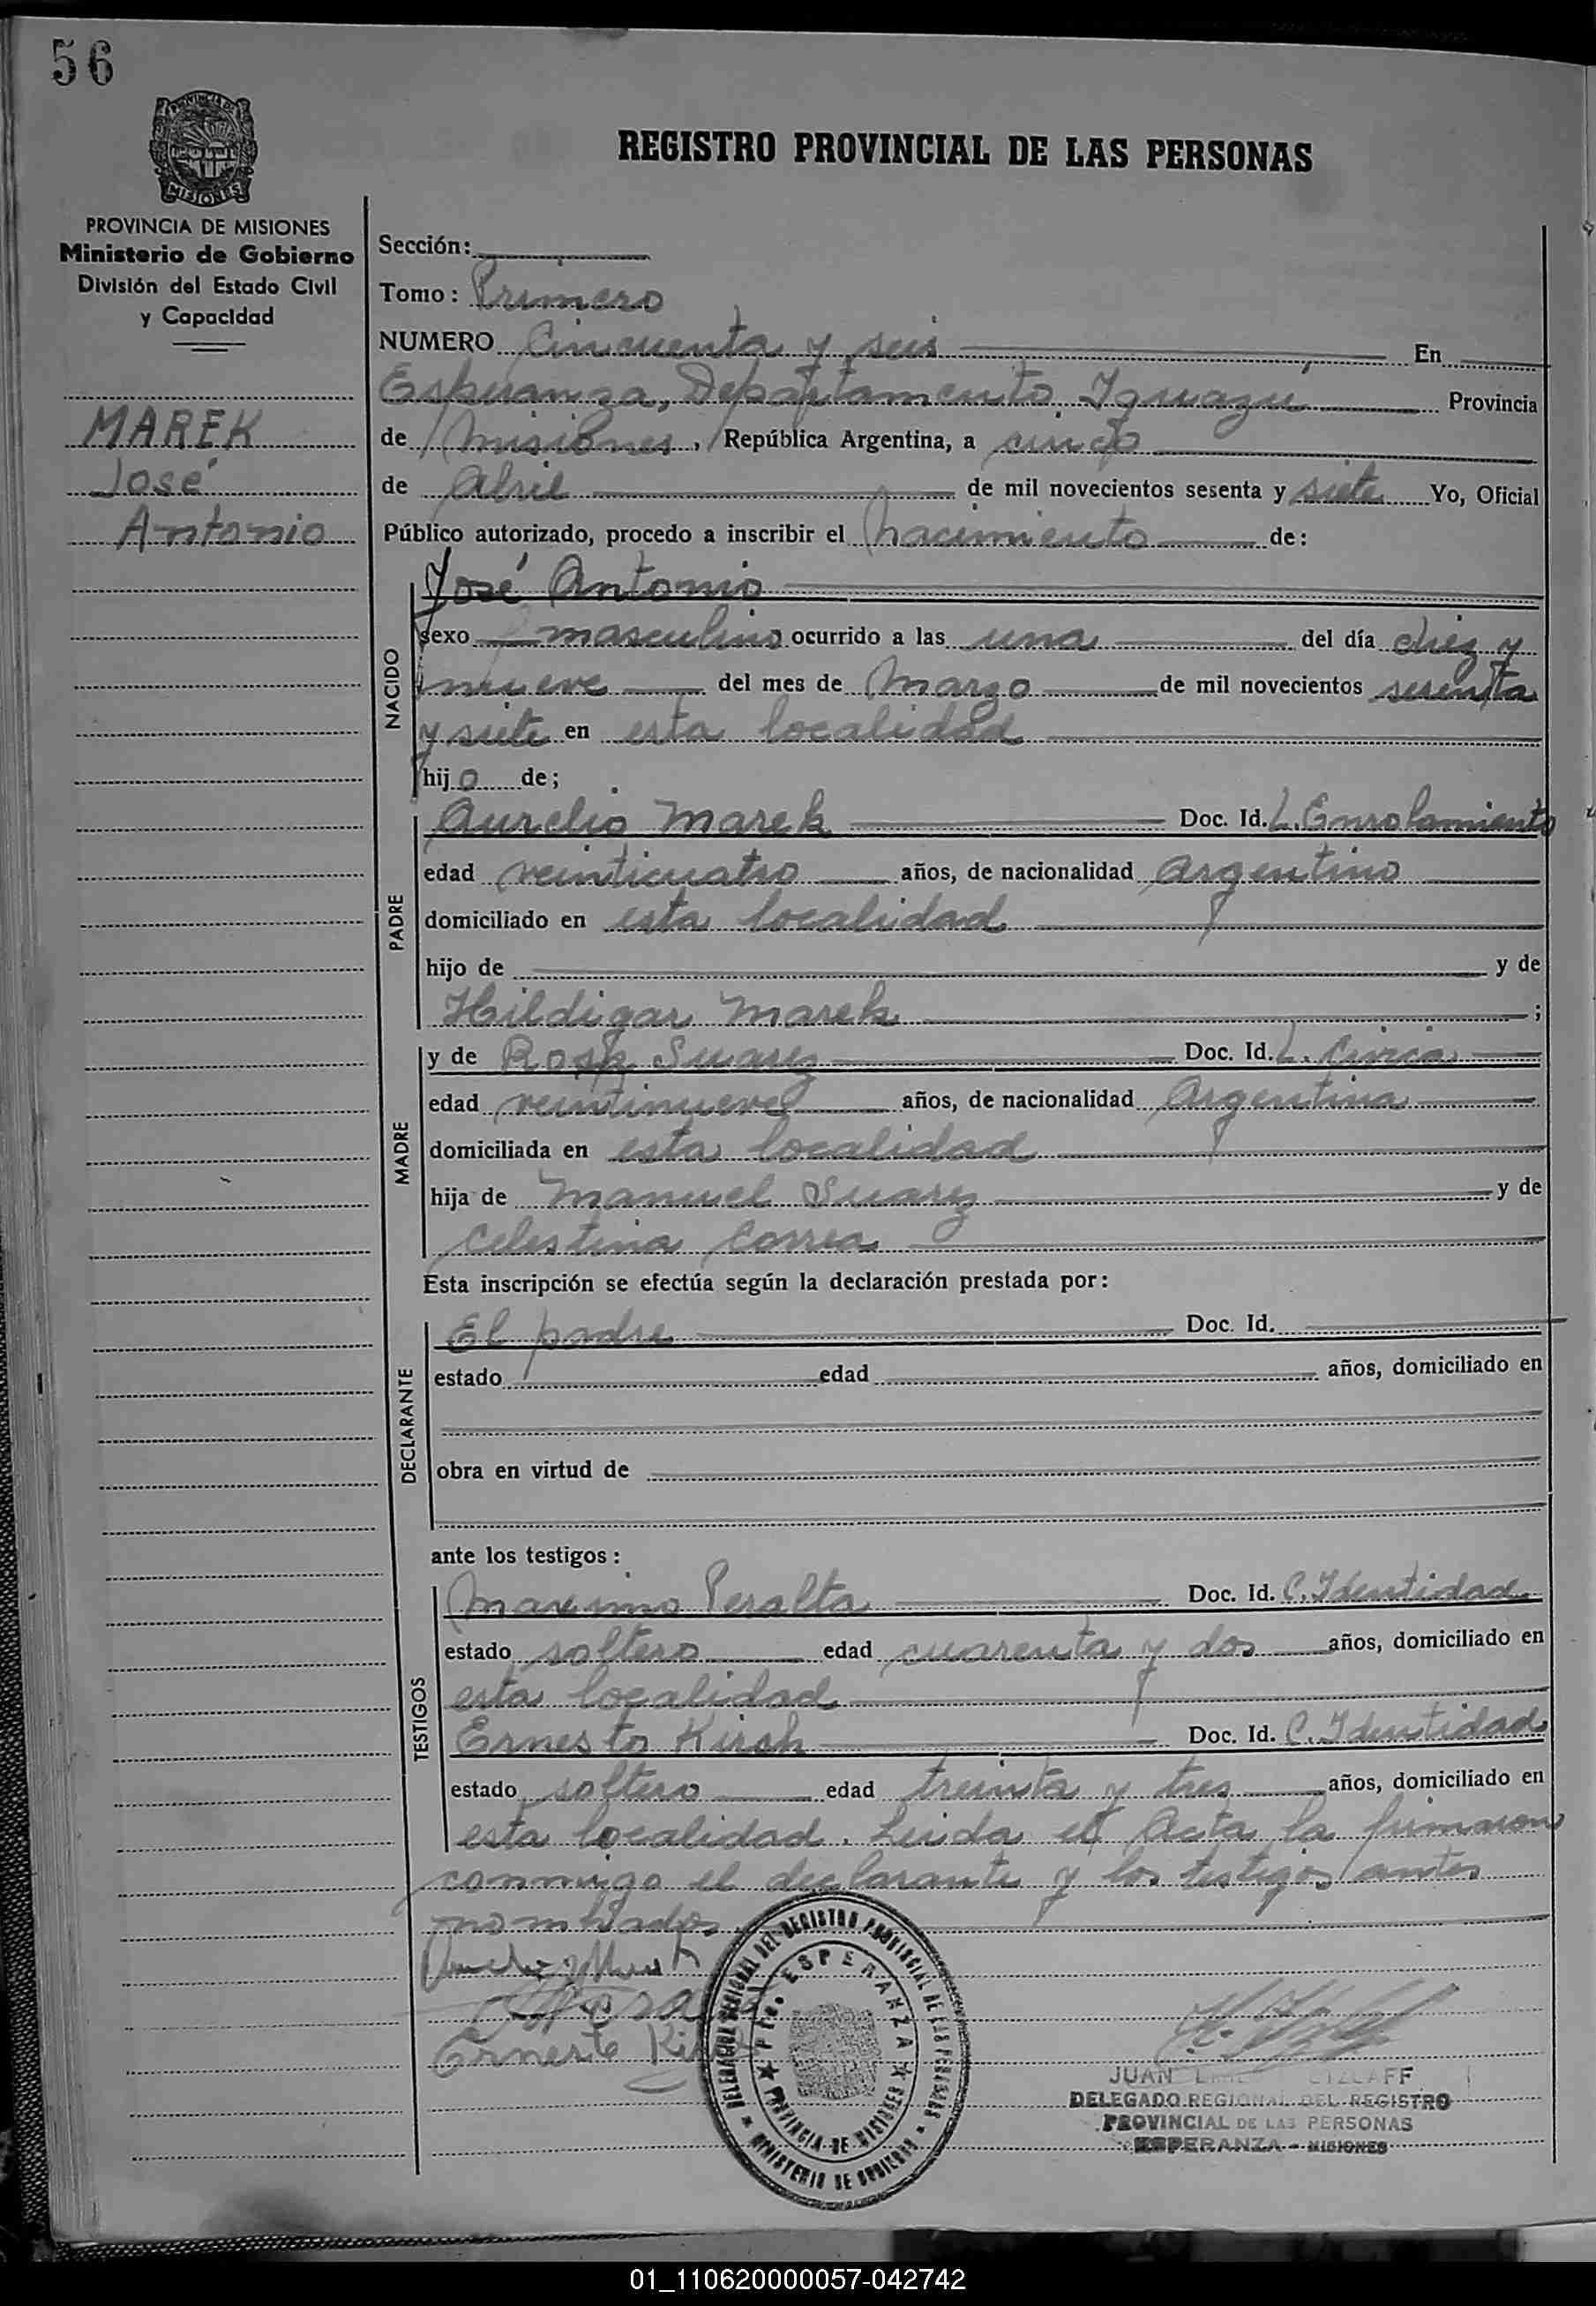 56
PROVINCIA DE
MISIONES
REGISTRO PROVINCIAL DE LAS PERSONAS
PROVINCIA DE MISIONES
Ministerio de Gobierno
División del Estado Civil
y Capacidad
MAREK
José
Antonio
Sección:
Tomo: Primero
NUMERO Cincuenta y seis En
Esperanza, Departamento Iguazú Provincia
de Misiones, República Argentina, a cinco
de Abril de mil novecientos sesenta y siete Yo, Oficial
Público autorizado, procedo a inscribir el nacimiento de:
NACIDO
José Antonio
sexo masculino ocurrido a las una del día diez y
nueve del mes de Marzo de mil novecientos sesenta
y siete en esta localidad
hijo de;
PADRE
Aurelio Marek Doc. Id. L. Enrolamiento
edad veinticuatro años, de nacionalidad Argentino
domiciliado en esta localidad
hijo de y de
Hildigar Marek ;
MADRE
y de Rosa Suarez Doc. Id. L. Civica
edad veintinueve años, de nacionalidad Argentina
domiciliada en esta localidad
hija de Manuel Suarez y de
Celestina Correa
Esta inscripción se efectúa según la declaración prestada por:
DECLARANTE
El padre Doc. Id.
estado edad años, domiciliado en
obra en virtud de
ante los testigos:
TESTIGOS
Maximo Peralta Doc. Id. C. Identidad
estado soltero edad cuarenta y dos años, domiciliado en
esta localidad
Ernesto Kirsh Doc. Id. C. Identidad
estado soltero edad treinta y tres años, domiciliado en
esta localidad. Leida el Acta la firmaron
conmigo el declarante y los testigos antes
nombrados.
Ernesto
DELEGADO REGIONAL DEL REGISTRO PROVINCIAL DE LAS PERSONAS
MINISTERIO DE GOBIERNO
Pto. ESPERANZA
PROVINCIA DE MISIONES
JUAN
DELEGADO REGIONAL DEL REGISTRO
PROVINCIAL DE LAS PERSONAS
ESPERANZA - MISIONES
01_110620000057-042742